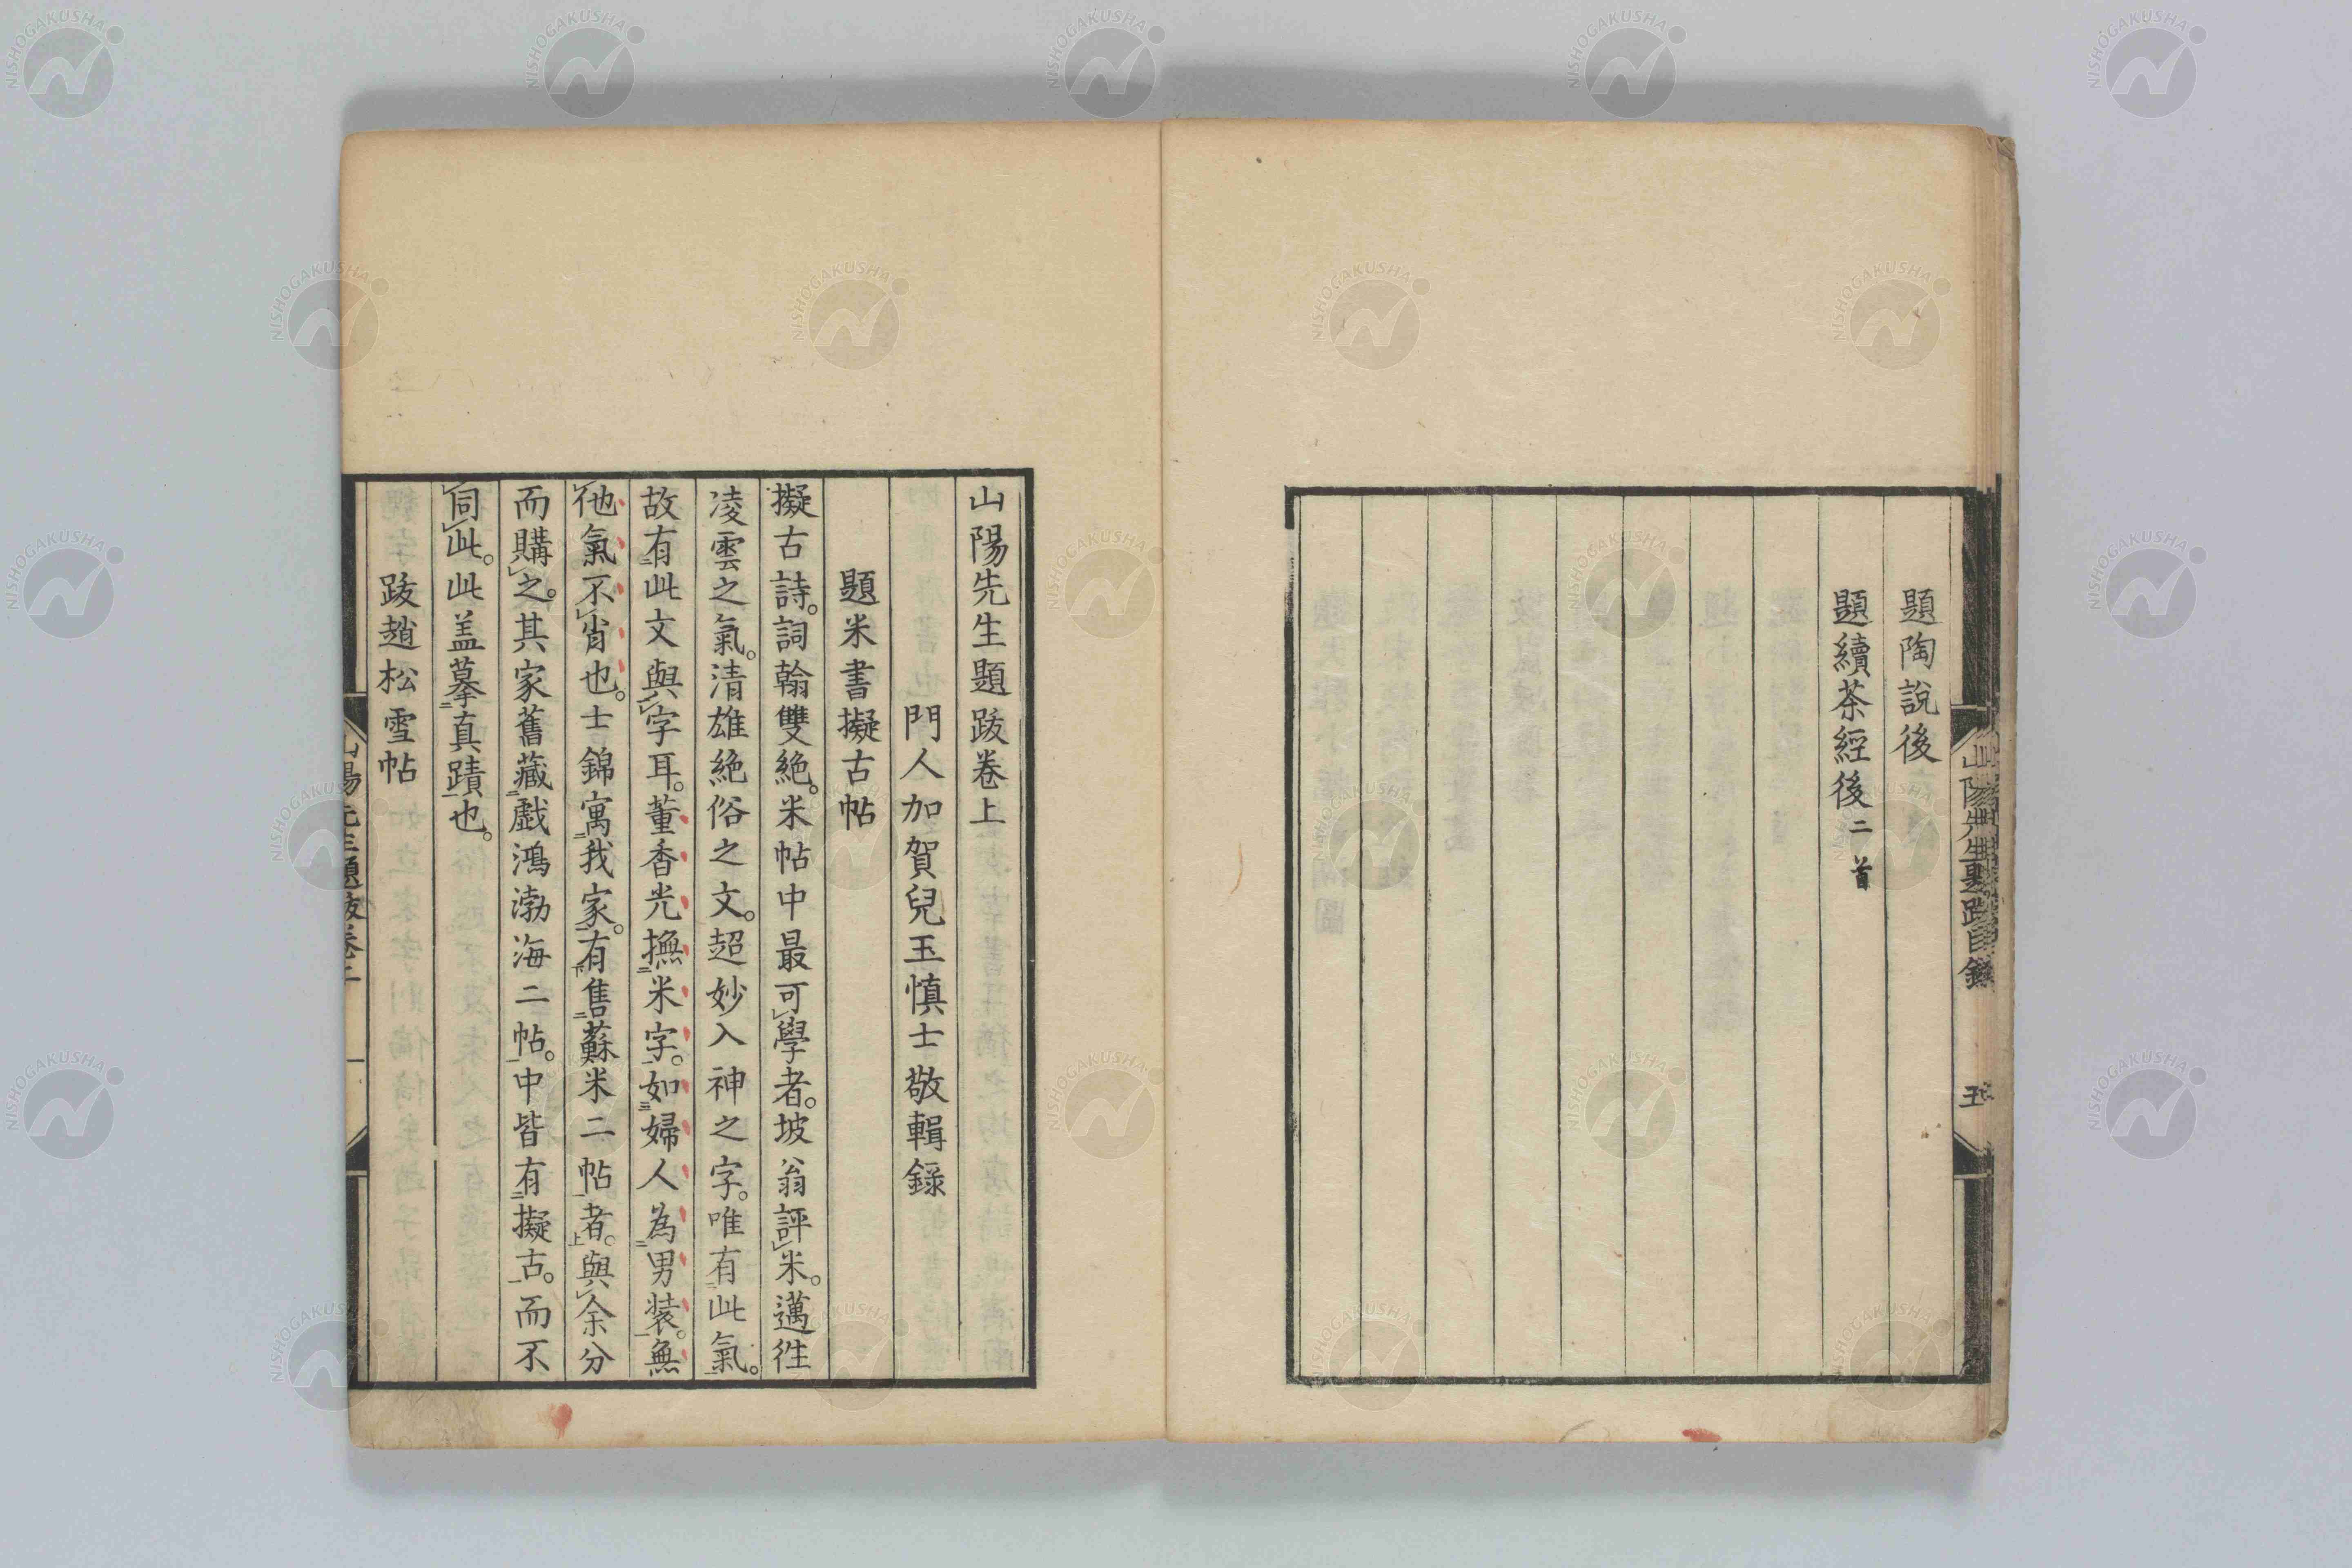 題陶說後
題續茶經後二首
山陽先生題跋目錄 五
山陽先生題跋卷上
門人加賀兒玉慎士敬輯錄
題米書擬古帖
擬古詩。詞翰雙絶。米帖中最可學者。坡翁評米。邁往
凌雲之氣。清雄絶俗之文。超妙入神之字。唯有此氣。
故有此文與字耳。董香光撫米字。如婦人為男裝。無
他氣不肖也。士錦寓我家。有售蘇米二帖者。與余分
而購之。其家舊藏戲鴻渤海二帖。中皆有擬古。而不
同此。此盖摹真蹟也。
跋趙松雪帖
山陽先生題跋卷上 一
NISHOGAKUSHA